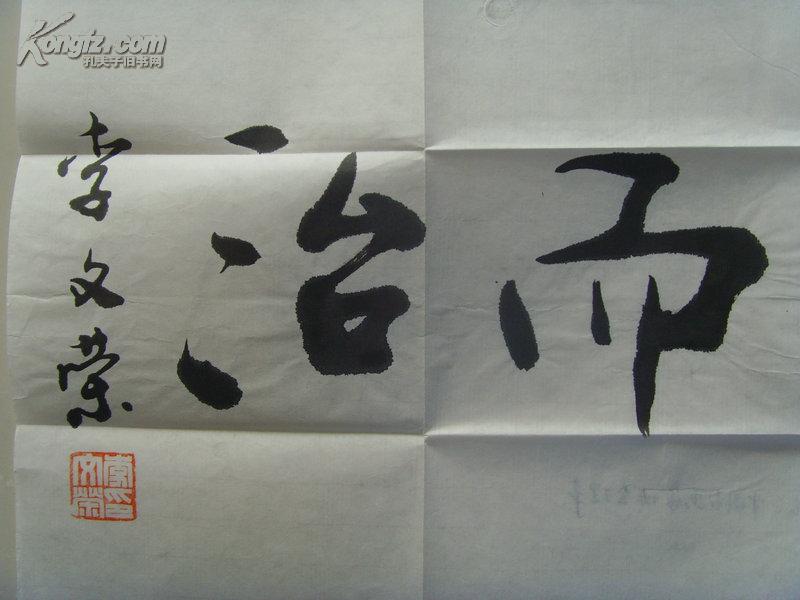 Kongfz.com
孔夫子旧书网
而治
李文荣
李印文榮